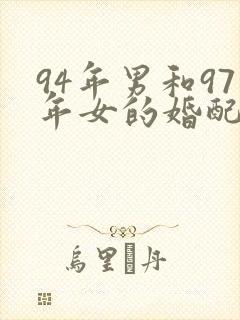 94年男和97
年女的婚配
乌里�丹